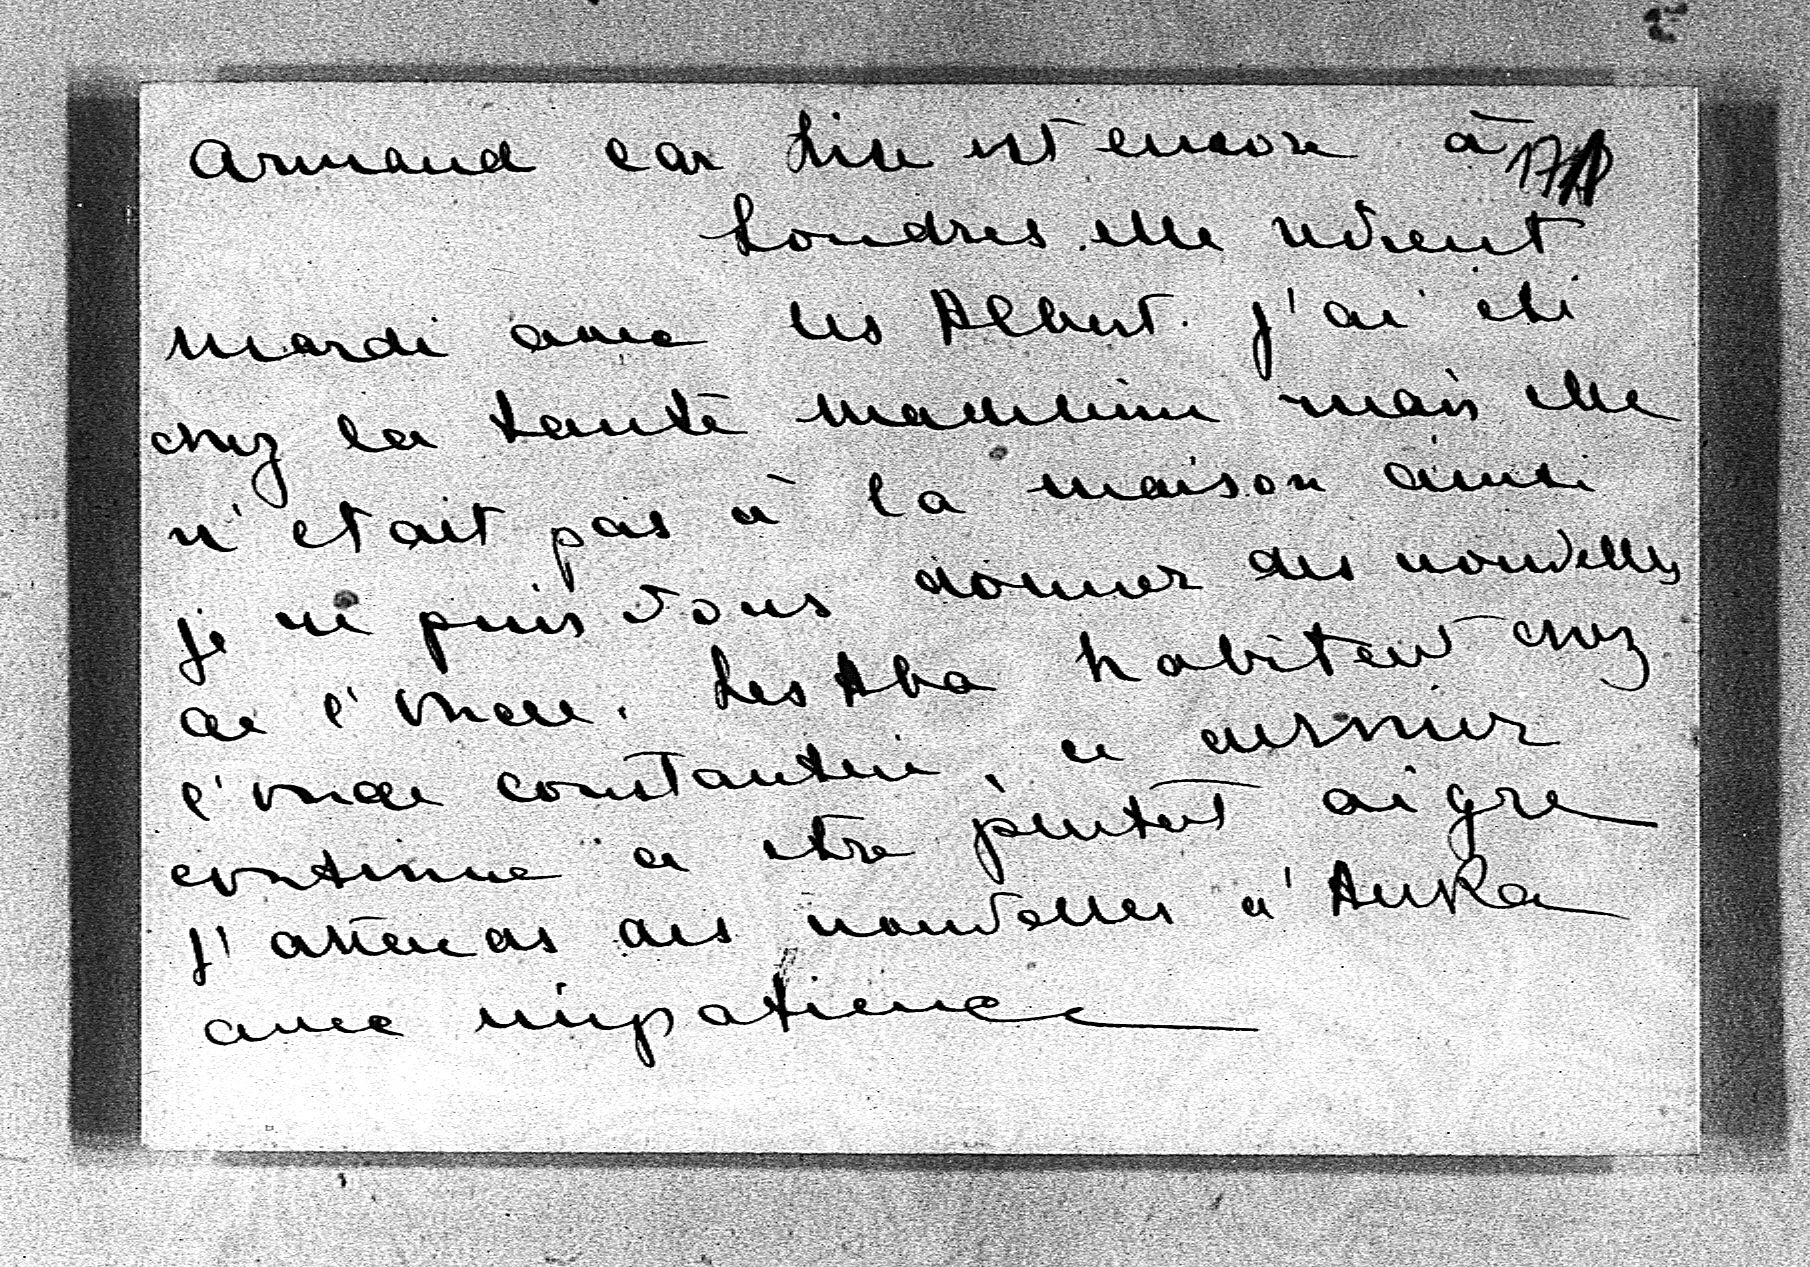 Armand car Lise est encore à
Londres. elle revient
mardi avec les Albert. j'ai été
chez la tante Madeleine mais elle
n'etait pas à la maison ainsi
je ne puis vous donner des nouvelles
de l'oncle. Les Aka habitent chez
l'oncle Constantin, ce dernier
continue a etre plutot aigre
J'attends des nouvelles d'
avec impatience